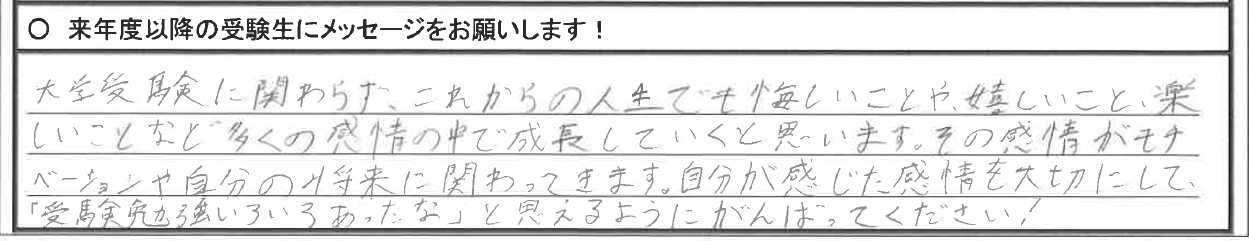 ○ 来年度以降の受験生にメッセージをお願いします！
大学受験に関わらず、これからの人生でも悔しいことや、嬉しいこと、楽
しいことなど多くの感情の中で成長していくと思います。その感情がモチ
ベーションや自分の将来に関わってきます。自分が感じた感情を大切にして、
「受験勉強いろいろあったな」と思えるようにがんばってください！